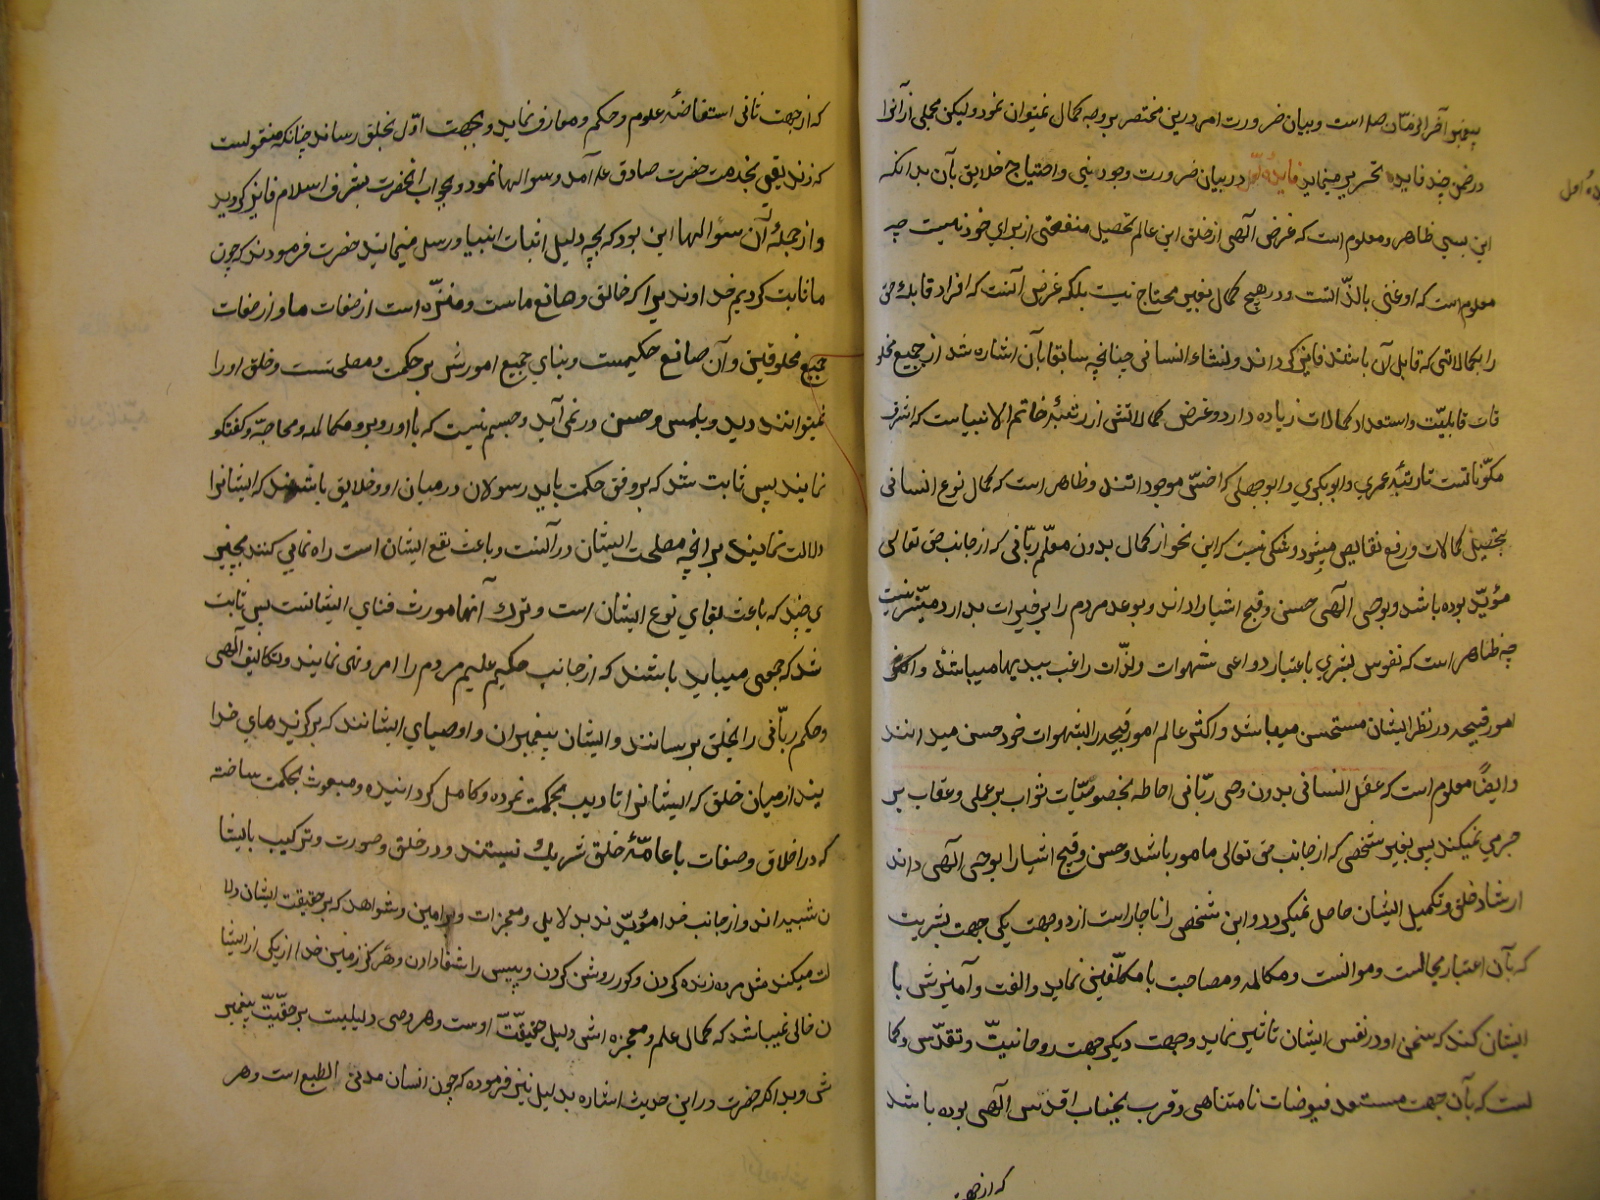 پیغمبر آخر الزمان صلعم است و بیان ضرورت امر درین مختصر بر وجه کمال نمیتوان نمود و لیکن مجملی از آنرا
در ضمن چند فایده تحریر مینماید فایده اول در بیان ضرورت وجود نبی و احتیاج خلایق بآن بدانکه
این بسی ظاهر و معلوم است که غرض آلهی از خلق این عالم تحصیل منفعتی از برای خود نیست چه
معلوم است که او غنی بالذّاتست و در هیچ کمال بغیر محتاج نیست بلکه غرض آنست که افراد قابله
را بکمالاتی که قابل آن باشند فایز گرداند و نشاء انسانی چنانچه سابقا بآن اشاره شد از جمیع مخلو
قات قابلیّت و استعداد کمالات زیاده دارد و غرض کمالاتش از رتبهٔ خاتم الانبیاست که اشرف
مکوّناتست تا رتبهٔ عمری و ابوبکری و ابوجهلی که اخسّ موجوداتند و ظاهر است که کمال نوع انسانی
بتحصیل کمالات و رفع نقایص میشود و شکی نیست که این نحو از کمال بدون معلّم ربّانی که از جانب حق تعالی
مؤیّد بوده باشد و بوحی آلهی حسن و قبح اشیا را داند و بوعد مردم را بر خیرات بدارد میسّر نیست
چه ظاهر است که نفوس بشری باعتبار دواعی شهوات و لذّات راغب ببدیها میباشند و اکثر
امور قبیحه در نظر ایشان مستحسن میباشد و اکثر عالم امور قبیحه را بشهوات خود حسن میدانند
و ایضاً معلوم است که عقل انسانی بدون وحی ربّانی احاطه بخصوصیّات ثواب بر عملی و عقاب بر
جرمی نمیکند پس بغیر شخصی که از جانب حق تعالی مامور باشد و حسن و قبح اشیا را بوحی آلهی داند
ارشاد خلق و تکمیل ایشان حاصل نمیگردد و این شخص را ناچار است از دو جهت یکی جهت بشریت
که بآن اعتبار مجالست و موانست و مکالمه و مصاحبت با مکلّفین نماید و الفت و آمیزش با
ایشان کند که سخن او در نفس ایشان تاثیر نماید و جهت دیگر جهت روحانیّت و تقدّس و کما
لست که بآن جهت مستعد فیوضات نامتناهی و قرب بجناب اقدس آلهی بوده باشد
که از جهت
که از جهت ثانی استفاضهٔ علوم و حکم و معارف نماید و بجهت اوّل بخلق رساند چنانکه منقولست
که زندیقی بخدمت حضرت صادق ع آمد و سوالها نمود و بجواب آنحضرت بشرف اسلام فایز گردید
و از جملهٔ آن سئوالها این بود که بچه دلیل اثبات انبیا و رسل مینمایند حضرت فرمودند که چون
ما ثابت کردیم خداوندی را که خالق و صانع ماست و منزّه است از صفات ما و از صفات
جمیع مخلوقین و آن صانع حکیمست و بنای جمیع امورش بر حکمت و مصلحتست و خلق او را
نمیتوانند دید و بلمس و حسن در نمی آید و جسم نیست که با او روبرو مکالمه و محاجّه و گفتگو
نمایند پس ثابت شد که بر وفق حکمت باید رسولان در میان او و خلایق باشند که ایشانرا
دلالت نمایند بر آنچه مصلحت ایشان در آنست و باعث نفع ایشان است و راه نمایی کنند بچیز
ی چند که باعث بقای نوع ایشان است و ترک آنها مورث فنای ایشانست پس ثابت
شد که جمعی میباید باشند که از جانب حکیم علیم مردم را امر و نهی نمایند و تکالیف آلهی
و حکم ربّانی را بخلق برسانند و ایشان پیغمبران و اوصیای ایشانند که برگزیدهای خدا
یند از میان خلق که ایشانرا تادیب بحکمت نموده و کامل گردانیده و مبعوث بحکمت ساخته
که در اخلاق و صفات با عامّهٔ خلق شریک نیستند و در خلق و صورت و ترکیب بایشا
ن شبیه اند و از جانب خدا مؤیّدند بدلایل و معجزات و براهین و شواهد که بر حقیقت ایشان دلا
لت میکند مثل مرده زنده کردن و کور روشن کردن و پیس را شفا دادن و هرگز زمین خدا از یکی از ایشا
ن خالی نمیباشد که کمال علم و معجزه اش دلیل حقیقّت اوست و هر وصی دلیلیست بر حقّیّت پیغمبر
ش و بدانکه حضرت در این حدیث اشاره بدلیل نیز فرموده که چون انسان مدنی الطبع است و هر